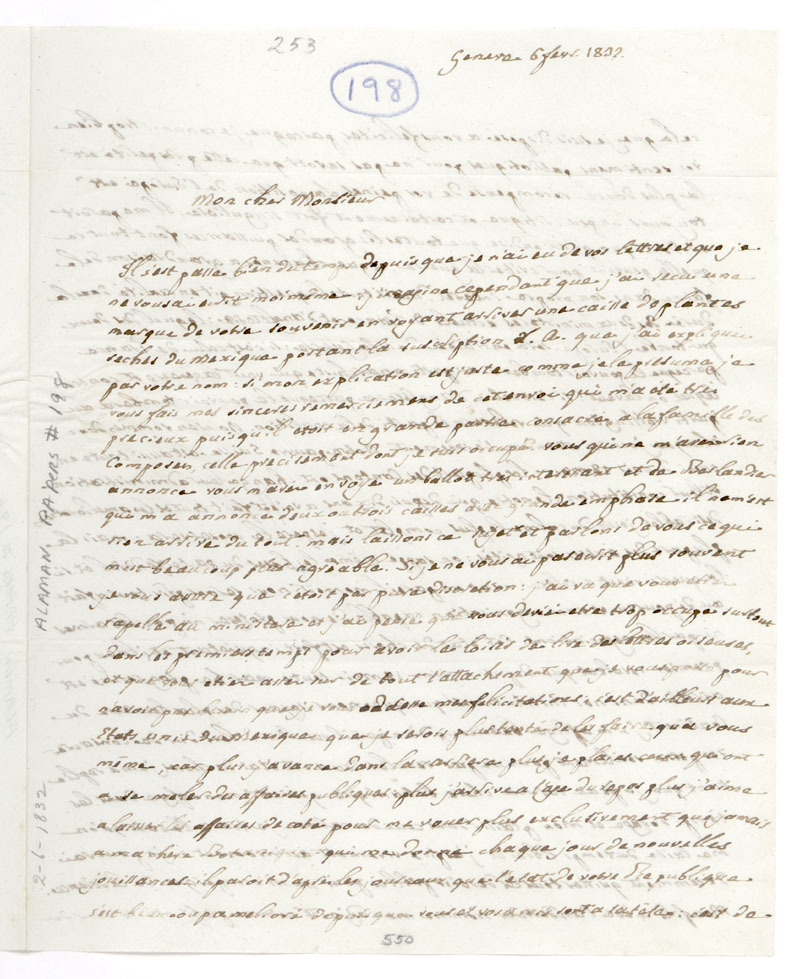 253
Geneve 6 fevr. 1832.
198
Mon cher Monsieur
Il s'est passé bien du temps depuis que je n'ai eu de vos lettres et que je
ne vous ai ecrit moi même j'imagine cependant que j'ai recu une
marque de votre souvenir en voyant arriver une caisse de plantes
seches du mexique portant la suscription L. A. que j'ai expliquée
par votre nom: si mon explication est juste comme je le presume je
vous fais mes sinceres remerciemens de cet envoi qui m'a été très
precieux puisqu'il etoit en grande partie consacré a la famille des
Composées, celle precisement dont je suis occupé. vous qui ne m'aviez rien
annoncé vous m'avez envoyé un ballot tres interessant et de Berlandier
qui m'a annoncé deux ou trois caisses avec grande emphase il ne m'est
rien arrivé du tout. mais laissons ce sujet et parlons de vous ce qui
m'est beaucoup plus agreable. Si je ne vous ai pas ecrit plus souvent
je vous assure que c'etoit par pure discretion: j'ai vu que vous etiez
rapellé au ministere et j'ai pensé que vous deviez etre trop occupé surtout
dans les premiers temps pour avoir le loisir de lire des lettres oiseuses,
et que vous etiez assez sur de tout l'attachement que je vous porte pour
n'avoir pas besoin que je vous addresse mes felicitations: c'est d'ailleurs aux
Etats unis du Mexique que je serois plus tenté de les faire qu'a vous
même, car plus j'avance dans la carriere plus je plains ceux qui ont
a se meler des affaires publiques plus j'arrive a l'age du repos plus j'aime
a laisser les affaires de coté pour me vouer plus exclusivement que jamais
a ma chere Botanique qui me donne chaque jour de nouvelles
jouissances. il paroit d'apres les journaux que l'etat de votre Republique
s'est beaucoup amelioré depuis que vous et vos amis sont a sa tête: c'est de
550
ALAMAN PAPERS # 198
2-6-1832